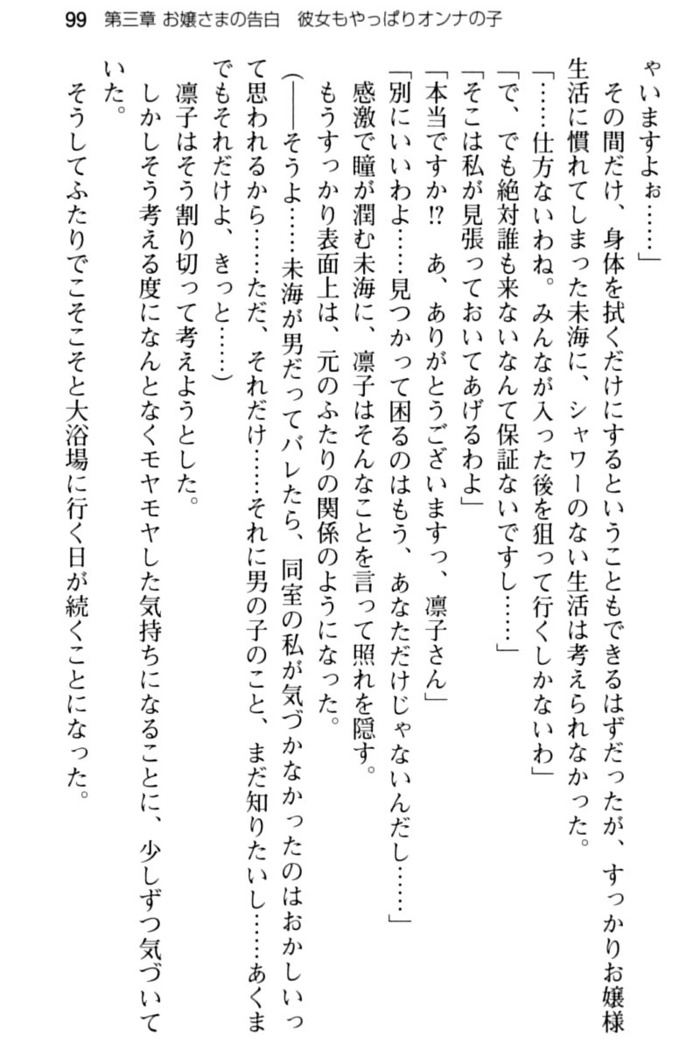 99 第三章 お嬢さまの告白　彼女もやっぱりオンナの子
ゃいますよぉ……」
　その間だけ、身体を拭くだけにするということもできるはずだったが、すっかりお嬢様
生活に慣れてしまった未海に、シャワーのない生活は考えられなかった。
「……仕方ないわね。みんなが入った後を狙って行くしかないわ」
「で、でも絶対誰も来ないなんて保証ないですし……」
「そこは私が見張っておいてあげるわよ」
「本当ですか!?　あ、ありがとうございますっ、凛子さん」
「別にいいわよ……見つかって困るのはもう、あなただけじゃないんだし……」
　感激で瞳が潤む未海に、凛子はそんなことを言って照れを隠す。
　もうすっかり表面上は、元のふたりの関係のようになった。
（――そうよ……未海が男だってバレたら、同室の私が気づかなかったのはおかしいっ
て思われるから……ただ、それだけ……それに男の子のこと、まだ知りたいし……あくま
でもそれだけよ、きっと……）
　凛子はそう割り切って考えようとした。
　しかしそう考える度になんとなくモヤモヤした気持ちになることに、少しずつ気づいて
いた。
　そうしてふたりでこそこそと大浴場に行く日が続くことになった。